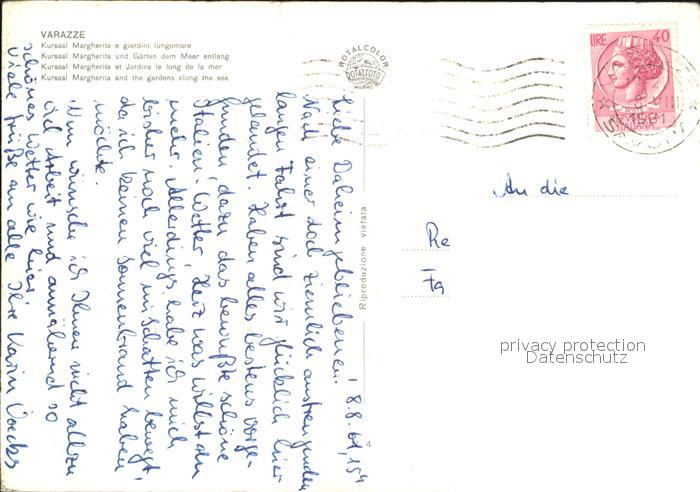 VARAZZE
Kursaal Margherita e giardini lungomare
Kursaal Margherita und Gärten dem Meer entlang
Kursaal Margherita et Jardins le long de la mer
Kursaal Margherita and the gardens along the sea
ROTALCOLOR
ROTALFOTO
MILANO
LIRE 40
ITALIANA
SAVONA
1961
8.8.61, 15h
Liebe Daheimgebliebenen!
Nach einer doch ziemlich anstrengenden
langen Fahrt sind wir glücklich hier
gelandet. Haben alles bestens vorge-
funden, dazu das bewußte schöne
Italien-Wetter, Herz was willst du
mehr. Allerdings habe ich mich
bisher noch viel im Schatten bewegt,
da ich keinen Sonnenbrand haben
möchte.
Nun wünsche ich Ihnen nicht allzu
viel Arbeit und annähernd so
schönes Wetter wie hier.
Viele Grüße an alle Ihre Karin
Riproduzione vietata
4
An die
Re
Fa
privacy protection
Datenschutz